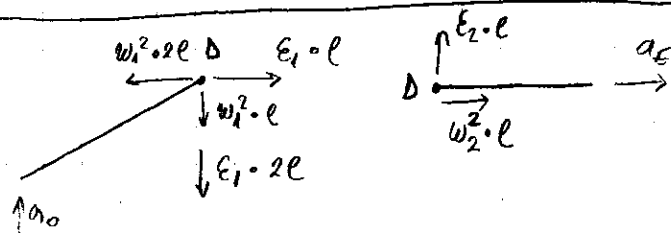 ω₁²·2ℓ D ε₁·ℓ
ω₁²·ℓ
ε₁·2ℓ
a₀
ε₂·ℓ
D a_E
ω₂²·ℓ